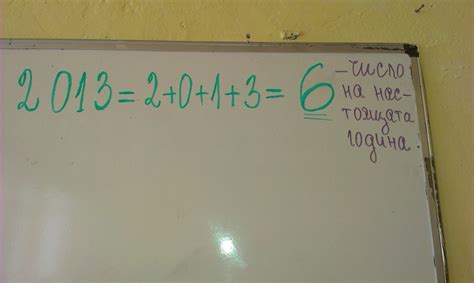 2013=2+0+1+3=6
–число
на нас-
тоящата
година.